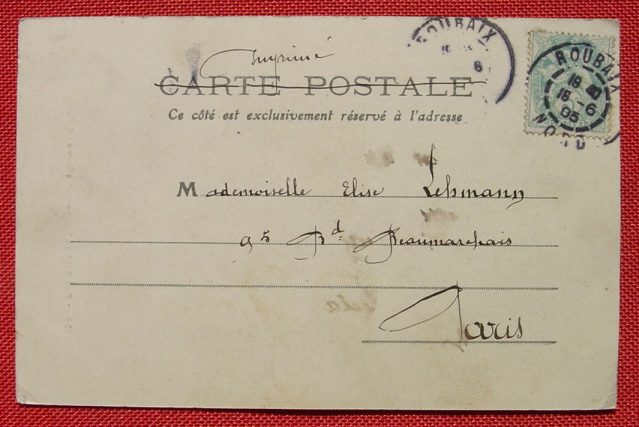 Imprimé
CARTE POSTALE
Ce côté est exclusivement réservé à l'adresse
Mademoiselle Elise Lehmann
95 Bd Beaumarchais
Paris
ROUBAIX
6
ROUBAIX
18
16 -6
05
NORD